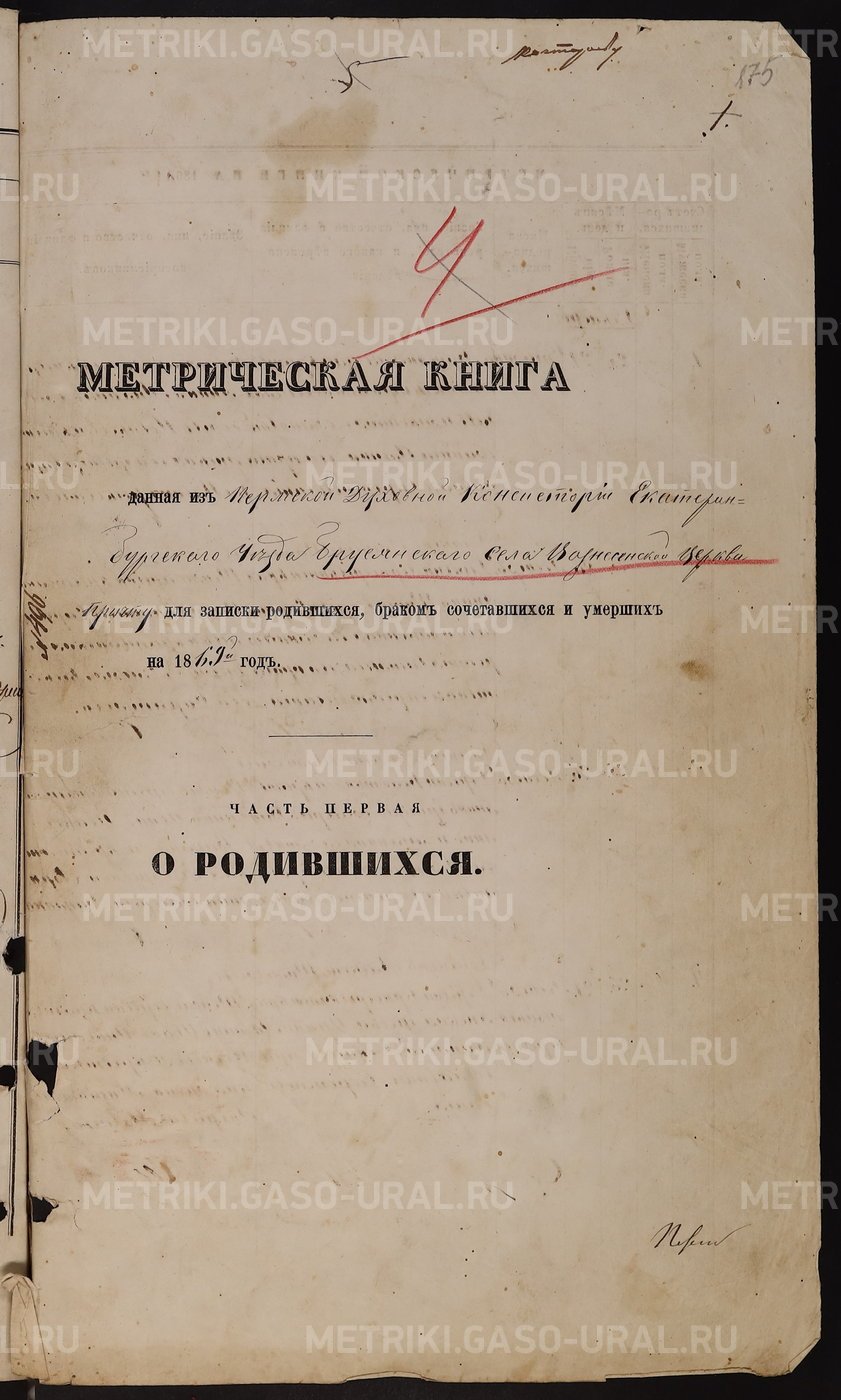 175
1.
4
МЕТРИЧЕСКАЯ КНИГА
данная изъ Пермской Духовной Консисторіи Екатерин=
бургскаго Уѣзда Бруснянскаго села Вознесенской Церкви
причту для записки родившихся, бракомъ сочетавшихся и умершихъ
на 1869й годъ.
ЧАСТЬ ПЕРВАЯ
О РОДИВШИХСЯ.
METRIKI.GASO-URAL.RU